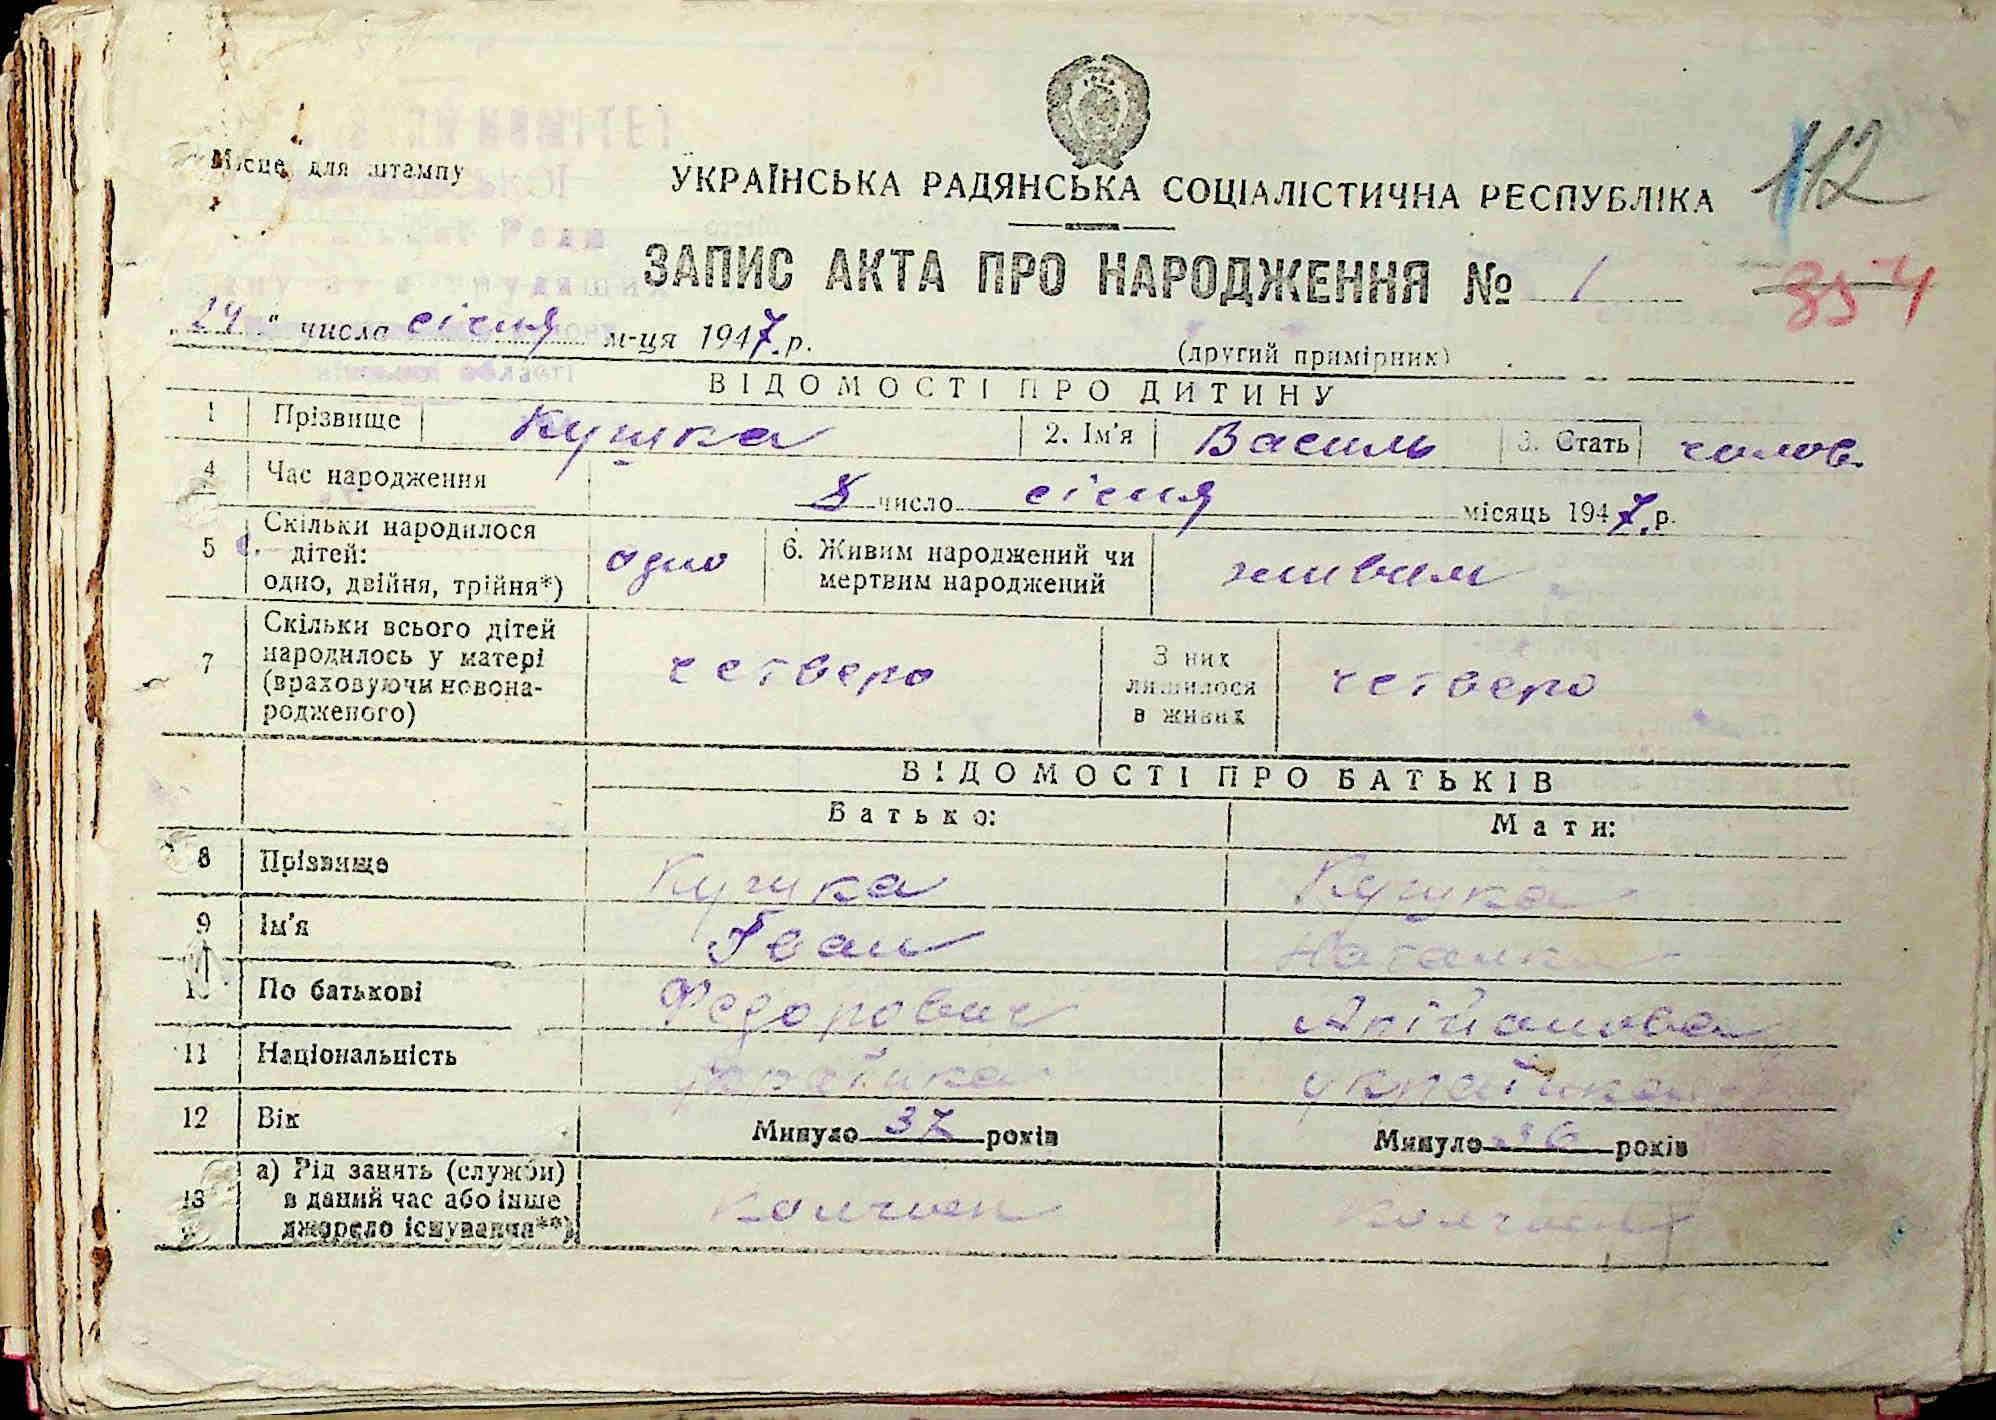 Місце для штампу
УКРАЇНСЬКА РАДЯНСЬКА СОЦІАЛІСТИЧНА РЕСПУБЛІКА
112
ЗАПИС АКТА ПРО НАРОДЖЕННЯ № 1
854
„24“ числа січня м-ця 1947 р.
(другий примірник)
ВІДОМОСТІ ПРО ДИТИНУ
1 Прізвище Кушка 2. Ім'я Василь 3. Стать чолов.
4 Час народження 8 число січня місяць 1947 р.
5 Скільки народилося дітей: одно, двійня, трійня*) одно 6. Живим народжений чи мертвим народжений живим
7 Скільки всього дітей народилось у матері (враховуючи новонародженого) четверо З них лишилося в живих четверо
ВІДОМОСТІ ПРО БАТЬКІВ
Батько: Мати:
8 Прізвище Кушка Кушка
9 Ім'я Іван Наталка
10 По батькові Федорович
11 Національність україн українка
12 Вік Минуло 37 років Минуло 36 років
13 а) Рід занять (служби) в даний час або інше джерело існування**) колгосп колгосп